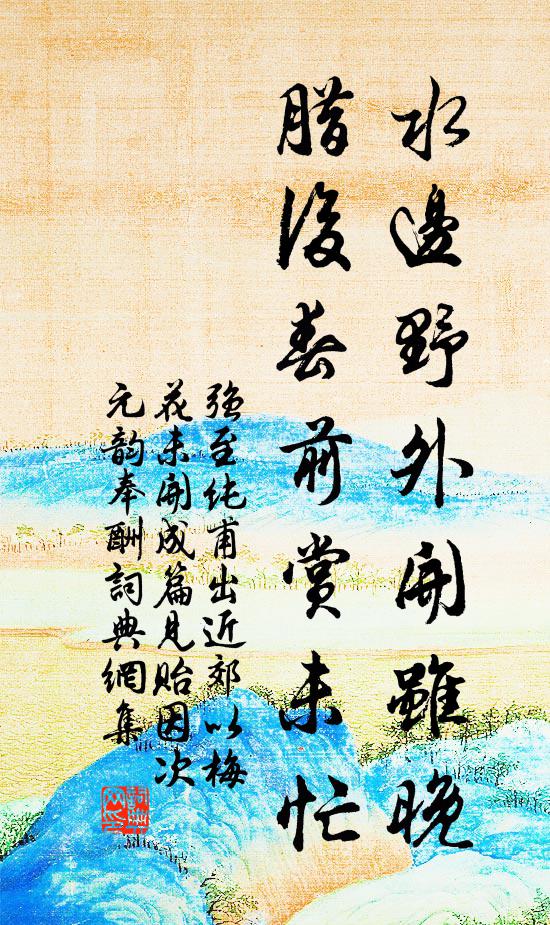 水邊野外開雖晚
腊後春前賞未忙
強至純甫出近郊以梅
花未開成篇見貽因次
元韵奉酬詞典網集